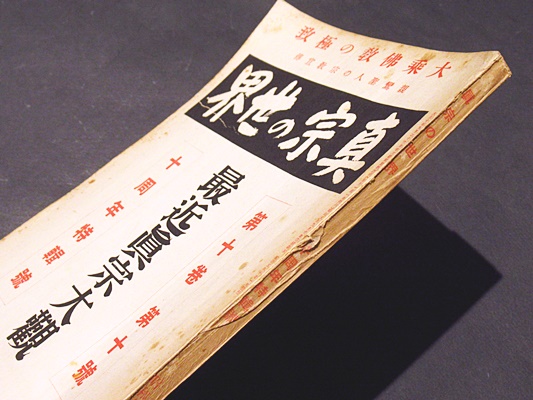 大乘佛教の極致
人の宗教
真宗の世界
第十卷 第十號
最近眞宗大觀
十周年特輯號